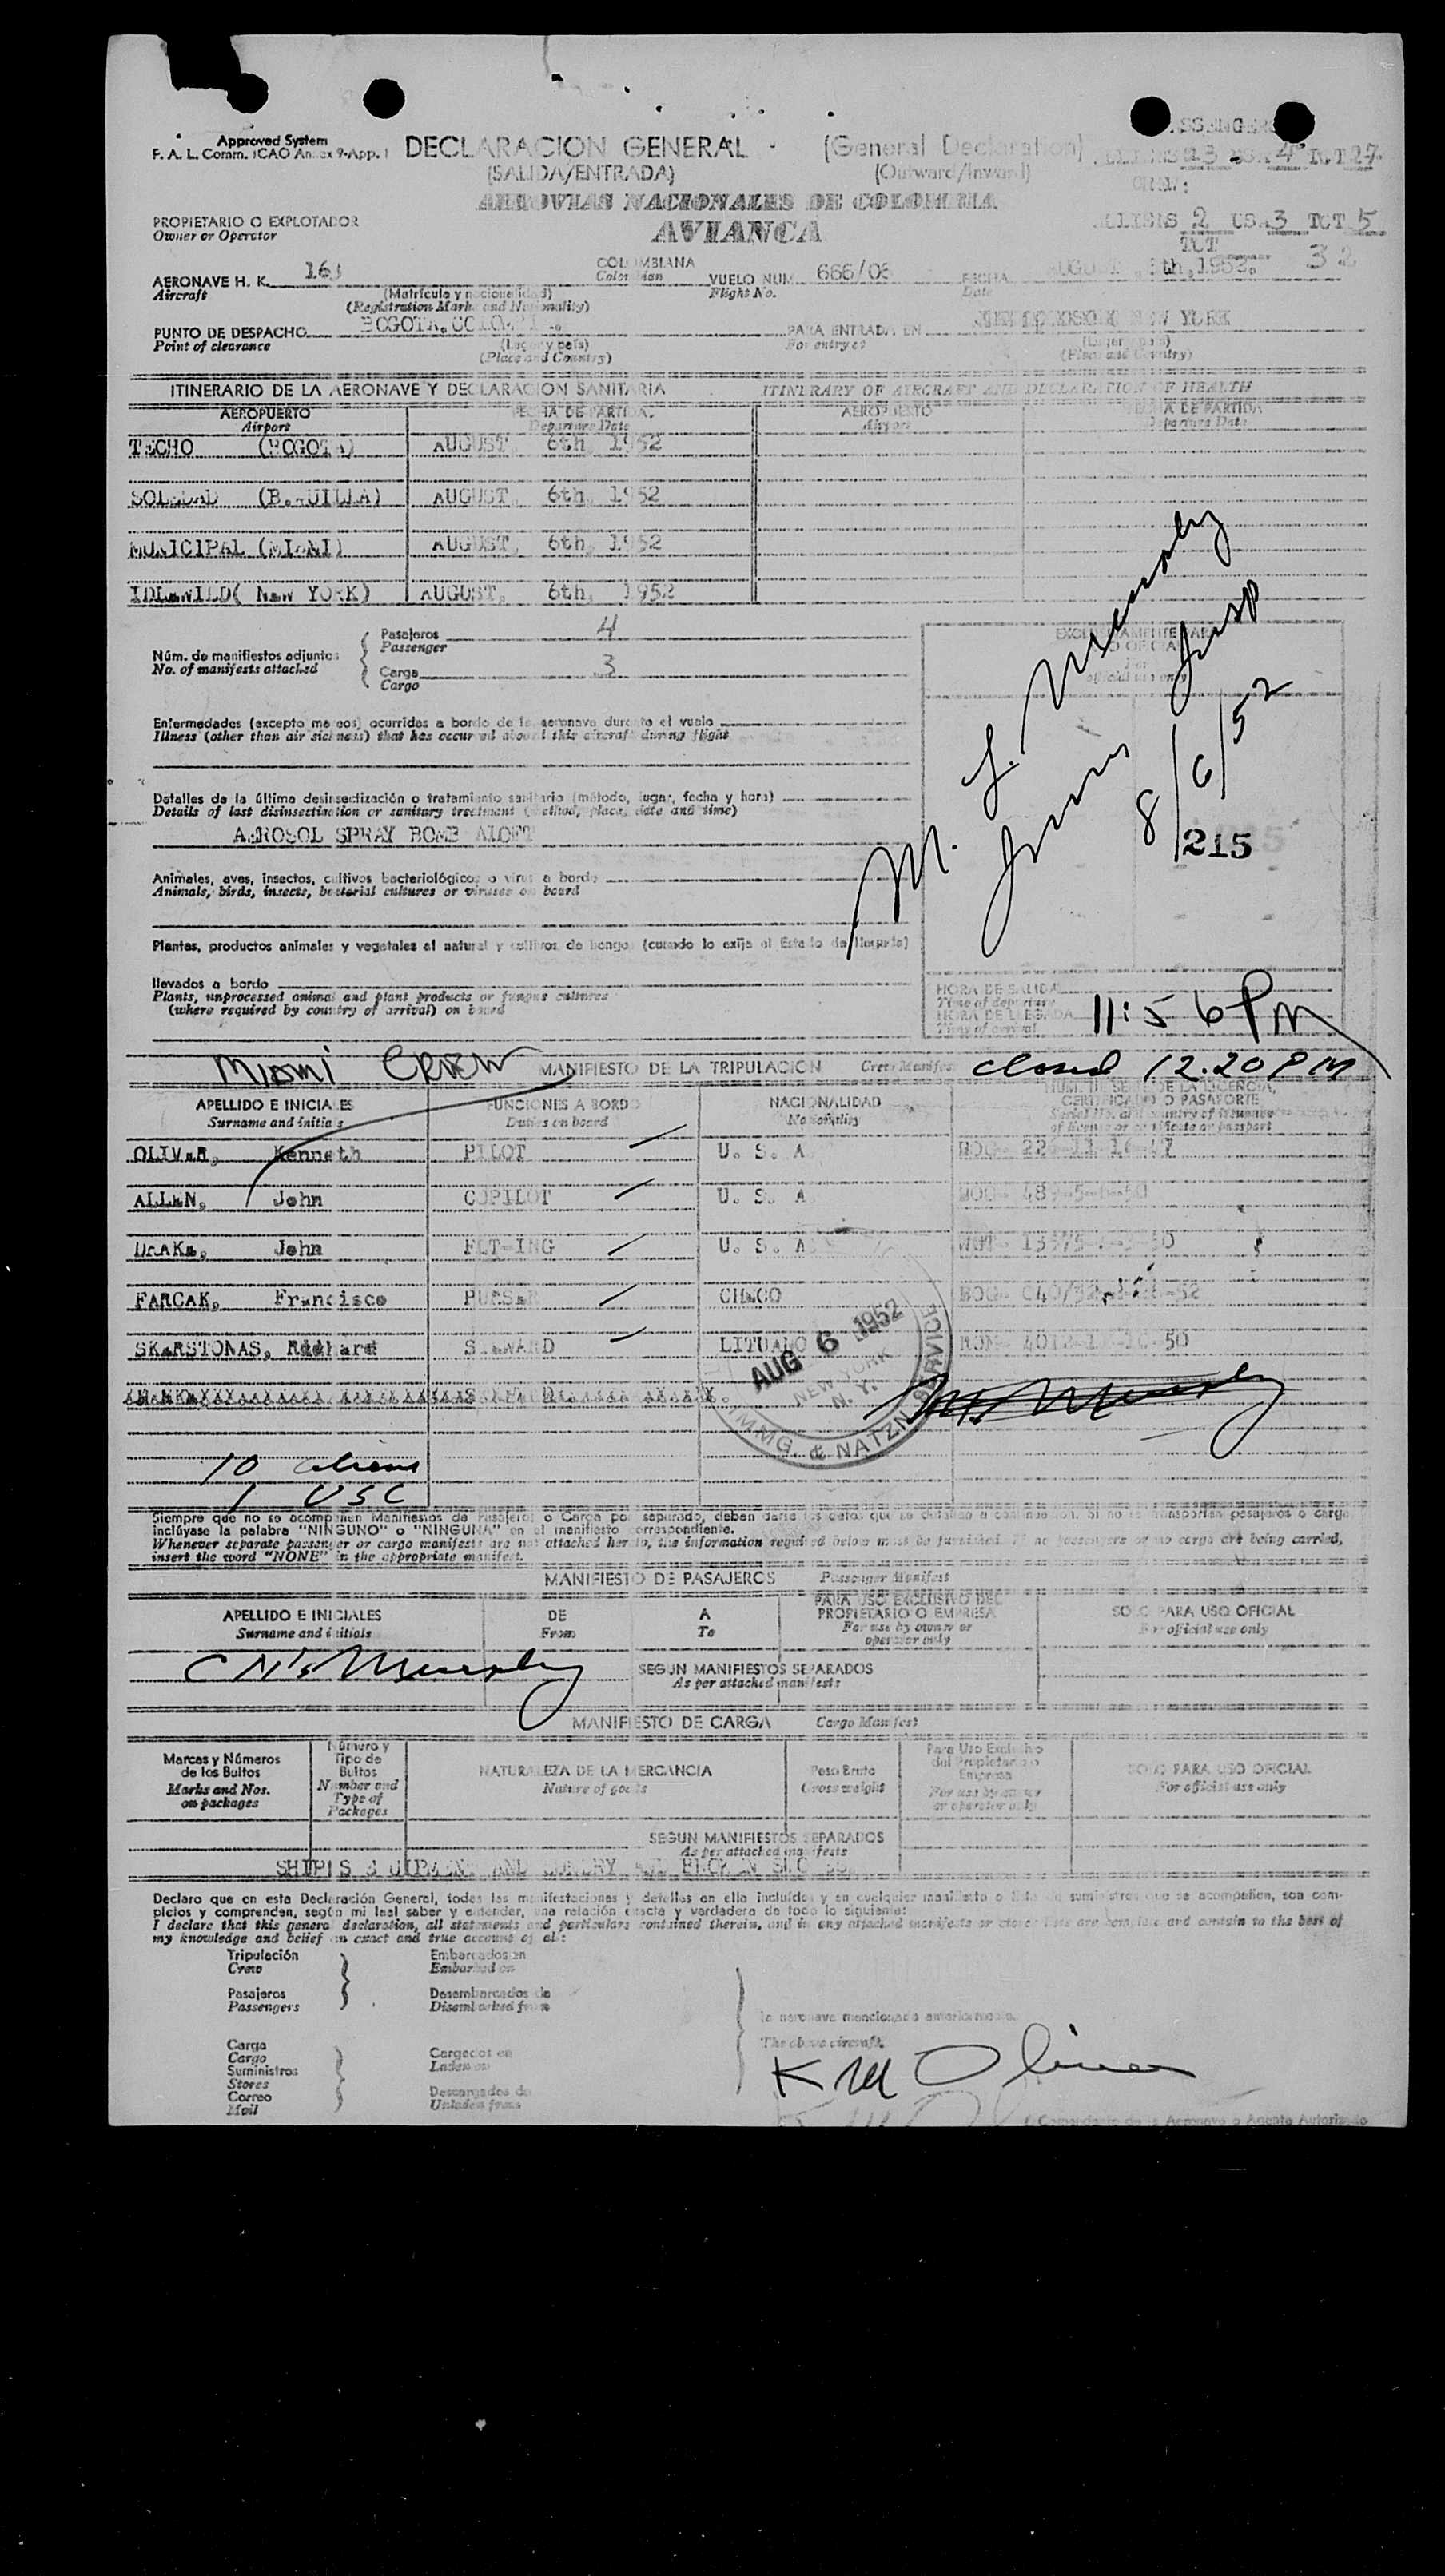 Approved System
F. A. L. Comm. (CAO Annex 9-App. 1
DECLARACION GENERAL - (General Declaration)
(SALIDA/ENTRADA) (Outward/Inward)
AEROVIAS NACIONALES DE COLOMBIA
AVIANCA
23 4 TOT 27
2 US 3 TOT 5
TOT 32
PROPIETARIO O EXPLOTADOR
Owner or Operator
AERONAVE H. K. COLOMBIANA VUELO NUM. FECHA AUGUST 6th, 1952.
Aircraft Colombian Flight No. Date
(Matrícula y nacionalidad)
(Registration Marks and Nationality)
PUNTO DE DESPACHO BOGOTA, COLOMBIA PARA ENTRADA EN NEW YORK
Point of clearance For entry at
(Lugar y país) (Lugar y país)
(Place and Country) (Place and Country)
ITINERARIO DE LA AERONAVE Y DECLARACION SANITARIA ITINERARY OF AIRCRAFT AND DECLARATION OF HEALTH
AEROPUERTO FECHA DE PARTIDA AEROPUERTO FECHA DE PARTIDA
Airport Departure Date Airport Departure Date
TECHO (BOGOTA) AUGUST, 6th, 1952
SOLEDAD (B.QUILLA) AUGUST, 6th, 1952
MUNICIPAL (MIAMI) AUGUST, 6th, 1952
IDLEWILD( NEW YORK) AUGUST, 6th, 1952
Núm. de manifiestos adjuntos
No. of manifests attached
Pasajeros 4
Passenger
Carga 3
Cargo
EXCLUSIVAMENTE PARA
USO OFICIAL
For
official use only
M. J. Murphy
Imm Insp
8/6/52
215
Enfermedades (excepto mareos) ocurridas a bordo de la aeronave durante el vuelo
Illness (other than air sickness) that has occurred aboard this aircraft during flight
Detalles de la última desinsectización o tratamiento sanitario (método, lugar, fecha y hora)
Details of last disinsectization or sanitary treatment (method, place, date and time)
AEROSOL SPRAY BOMB ALOFT
Animales, aves, insectos, cultivos bacteriológicos o virus a bordo
Animals, birds, insects, bacterial cultures or viruses on board
Plantas, productos animales y vegetales al natural y cultivos de hongos (cuando lo exija el Estado de llegada)
llevados a bordo
Plants, unprocessed animal and plant products or fungus cultures
(where required by country of arrival) on board
HORA DE SALIDA
Time of departure
HORA DE LLEGADA 11:56 PM
Time of arrival
Miami Crew MANIFIESTO DE LA TRIPULACION Crew Manifest Closed 12.20 PM
APELLIDO E INICIALES FUNCIONES A BORDO NACIONALIDAD NUM. DE SERIE DE LA LICENCIA, CERTIFICADO O PASAPORTE
Surname and initials Duties on board Nationality Serial No. and country of issuance of license or certificate or passport
OLIVER, Kenneth PILOT U. S. A.
ALLEN, John COPILOT U. S. A.
DRAKE, John FLT-ING U. S. A.
FARCAK, Francisco PURSER CHECO
SKARSTONAS, Richard STEWARD LITUANO
AUG 6 1952
NEW YORK
N. Y.
IMMG. & NATZN SERVICE
10 aliens
1 USC
Siempre que no se acompañen Manifiestos de Pasajeros o Carga por separado, deben darse los datos que se detallan a continuación. Si no se transportan pasajeros o carga
inclúyase la palabra "NINGUNO" o "NINGUNA" en el manifiesto correspondiente.
Whenever separate passenger or cargo manifests are not attached hereto, the information required below must be furnished. If no passengers or no cargo are being carried,
insert the word "NONE" in the appropriate manifest.
MANIFIESTO DE PASAJEROS Passenger Manifest
APELLIDO E INICIALES DE A PARA USO EXCLUSIVO DEL PROPIETARIO O EMPRESA SOLO PARA USO OFICIAL
Surname and initials From To For use by owner or operator only For official use only
Murphy
SEGUN MANIFIESTOS SEPARADOS
As per attached manifests
MANIFIESTO DE CARGA Cargo Manifest
Marcas y Números de los Bultos Número y Tipo de Bultos NATURALEZA DE LA MERCANCIA Peso Bruto Para Uso Exclusivo del Propietario o Empresa SOLO PARA USO OFICIAL
Marks and Nos. on packages Number and Type of Packages Nature of goods Gross weight For use by owner or operator only For official use only
SEGUN MANIFIESTOS SEPARADOS
As per attached manifests
Declaro que en esta Declaración General, todas las manifestaciones y detalles en ella incluídos y en cualquier manifiesto o lista de suministros que se acompañen, son com-
pletos y comprenden, según mi leal saber y entender, una relación exacta y verdadera de todo lo siguiente:
I declare that this general declaration, all statements and particulars contained therein, and in any attached manifests or stores lists are complete and contain to the best of
my knowledge and belief an exact and true account of all:
Tripulación Embarcados en
Crew Embarked on
Pasajeros Desembarcados de
Passengers Disembarked from
la aeronave mencionada anteriormente.
The above aircraft.
Carga Cargados en
Cargo Laden on
Suministros
Stores
Correo Descargados de
Mail Unladen from
K M Oliver
Comandante de la Aeronave o Agente Autorizado